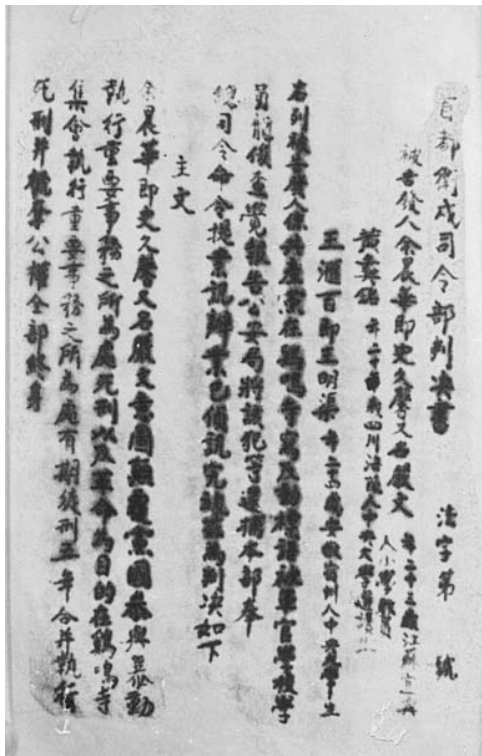 首都衛戍司令部判決書 法字第 號
被告發人余晨華即史久馨又名嚴文 年二十三歲江蘇 人小學
黃 年二十 歲四川涪陵人中央大學
王滙百即王明渠 年二 歲安徽宿州人中央大學生
右列被告發人係共產黨在鷄鳴寺寫反動標語被軍官學校學
員 偵查覺報告公安局將該犯等遞捕本部奉
總司令命令提案訊辦業已偵訊完 爲判決如下
主文
余晨華即史久馨又名嚴文意圖顛覆黨國參與暴動
執行重要事務之所爲處死刑以反革命爲目的在鷄鳴寺
集會執行重要事務之所爲處有期徒刑五年合并執行
死刑并褫奪公權全部終身